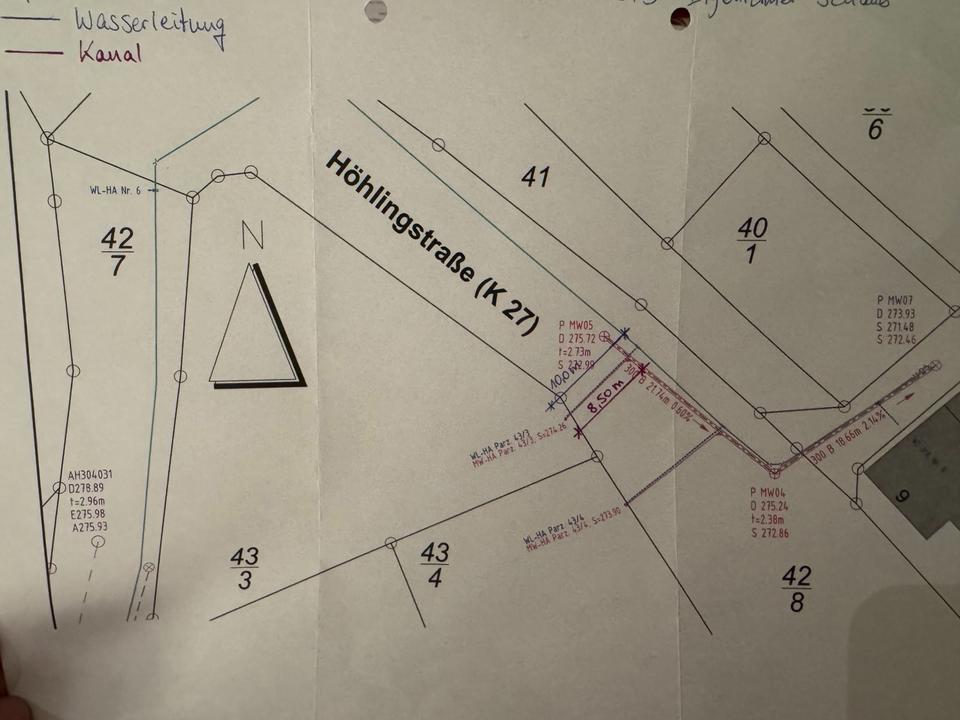 Wasserleitung
Kanal
6
41
WL-HA Nr. 6
42
7
N
40
1
Höhlingstraße (K 27)
P MW07
D 273.93
S 271.48
S 272.46
P MW05
D 275.72
t=2.73m
S 272.99
10,0m
8,50m
300 B 21.74m 0.60%
300 B 18.66m 2.14%
WL-HA Parz. 43/3
MW-HA Parz. 43/3, S=274.26
AH304031
D278.89
t=2.96m
E275.98
A275.93
P MW04
D 275.24
t=2.38m
S 272.86
9
WL-HA Parz. 43/4
MW-HA Parz. 43/4, S=273.90
43
3
43
4
42
8